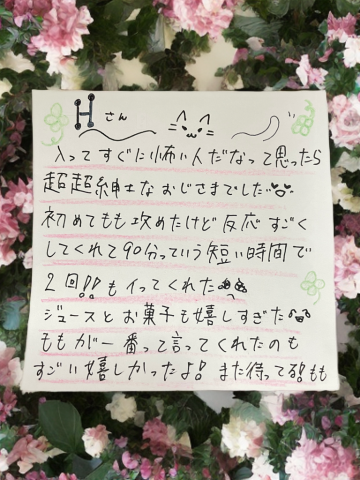 Hさん
入ってすぐに怖い人だなって思ったら
超超紳士なおじさまでした
初めてもも攻めたけど反応すごく
してくれて90分っていう短い時間で
2回!!もイってくれた
ジュースとお菓子も嬉しすぎた
ももが一番って言ってくれたのも
すごい嬉しかったよ! また待ってる! もも